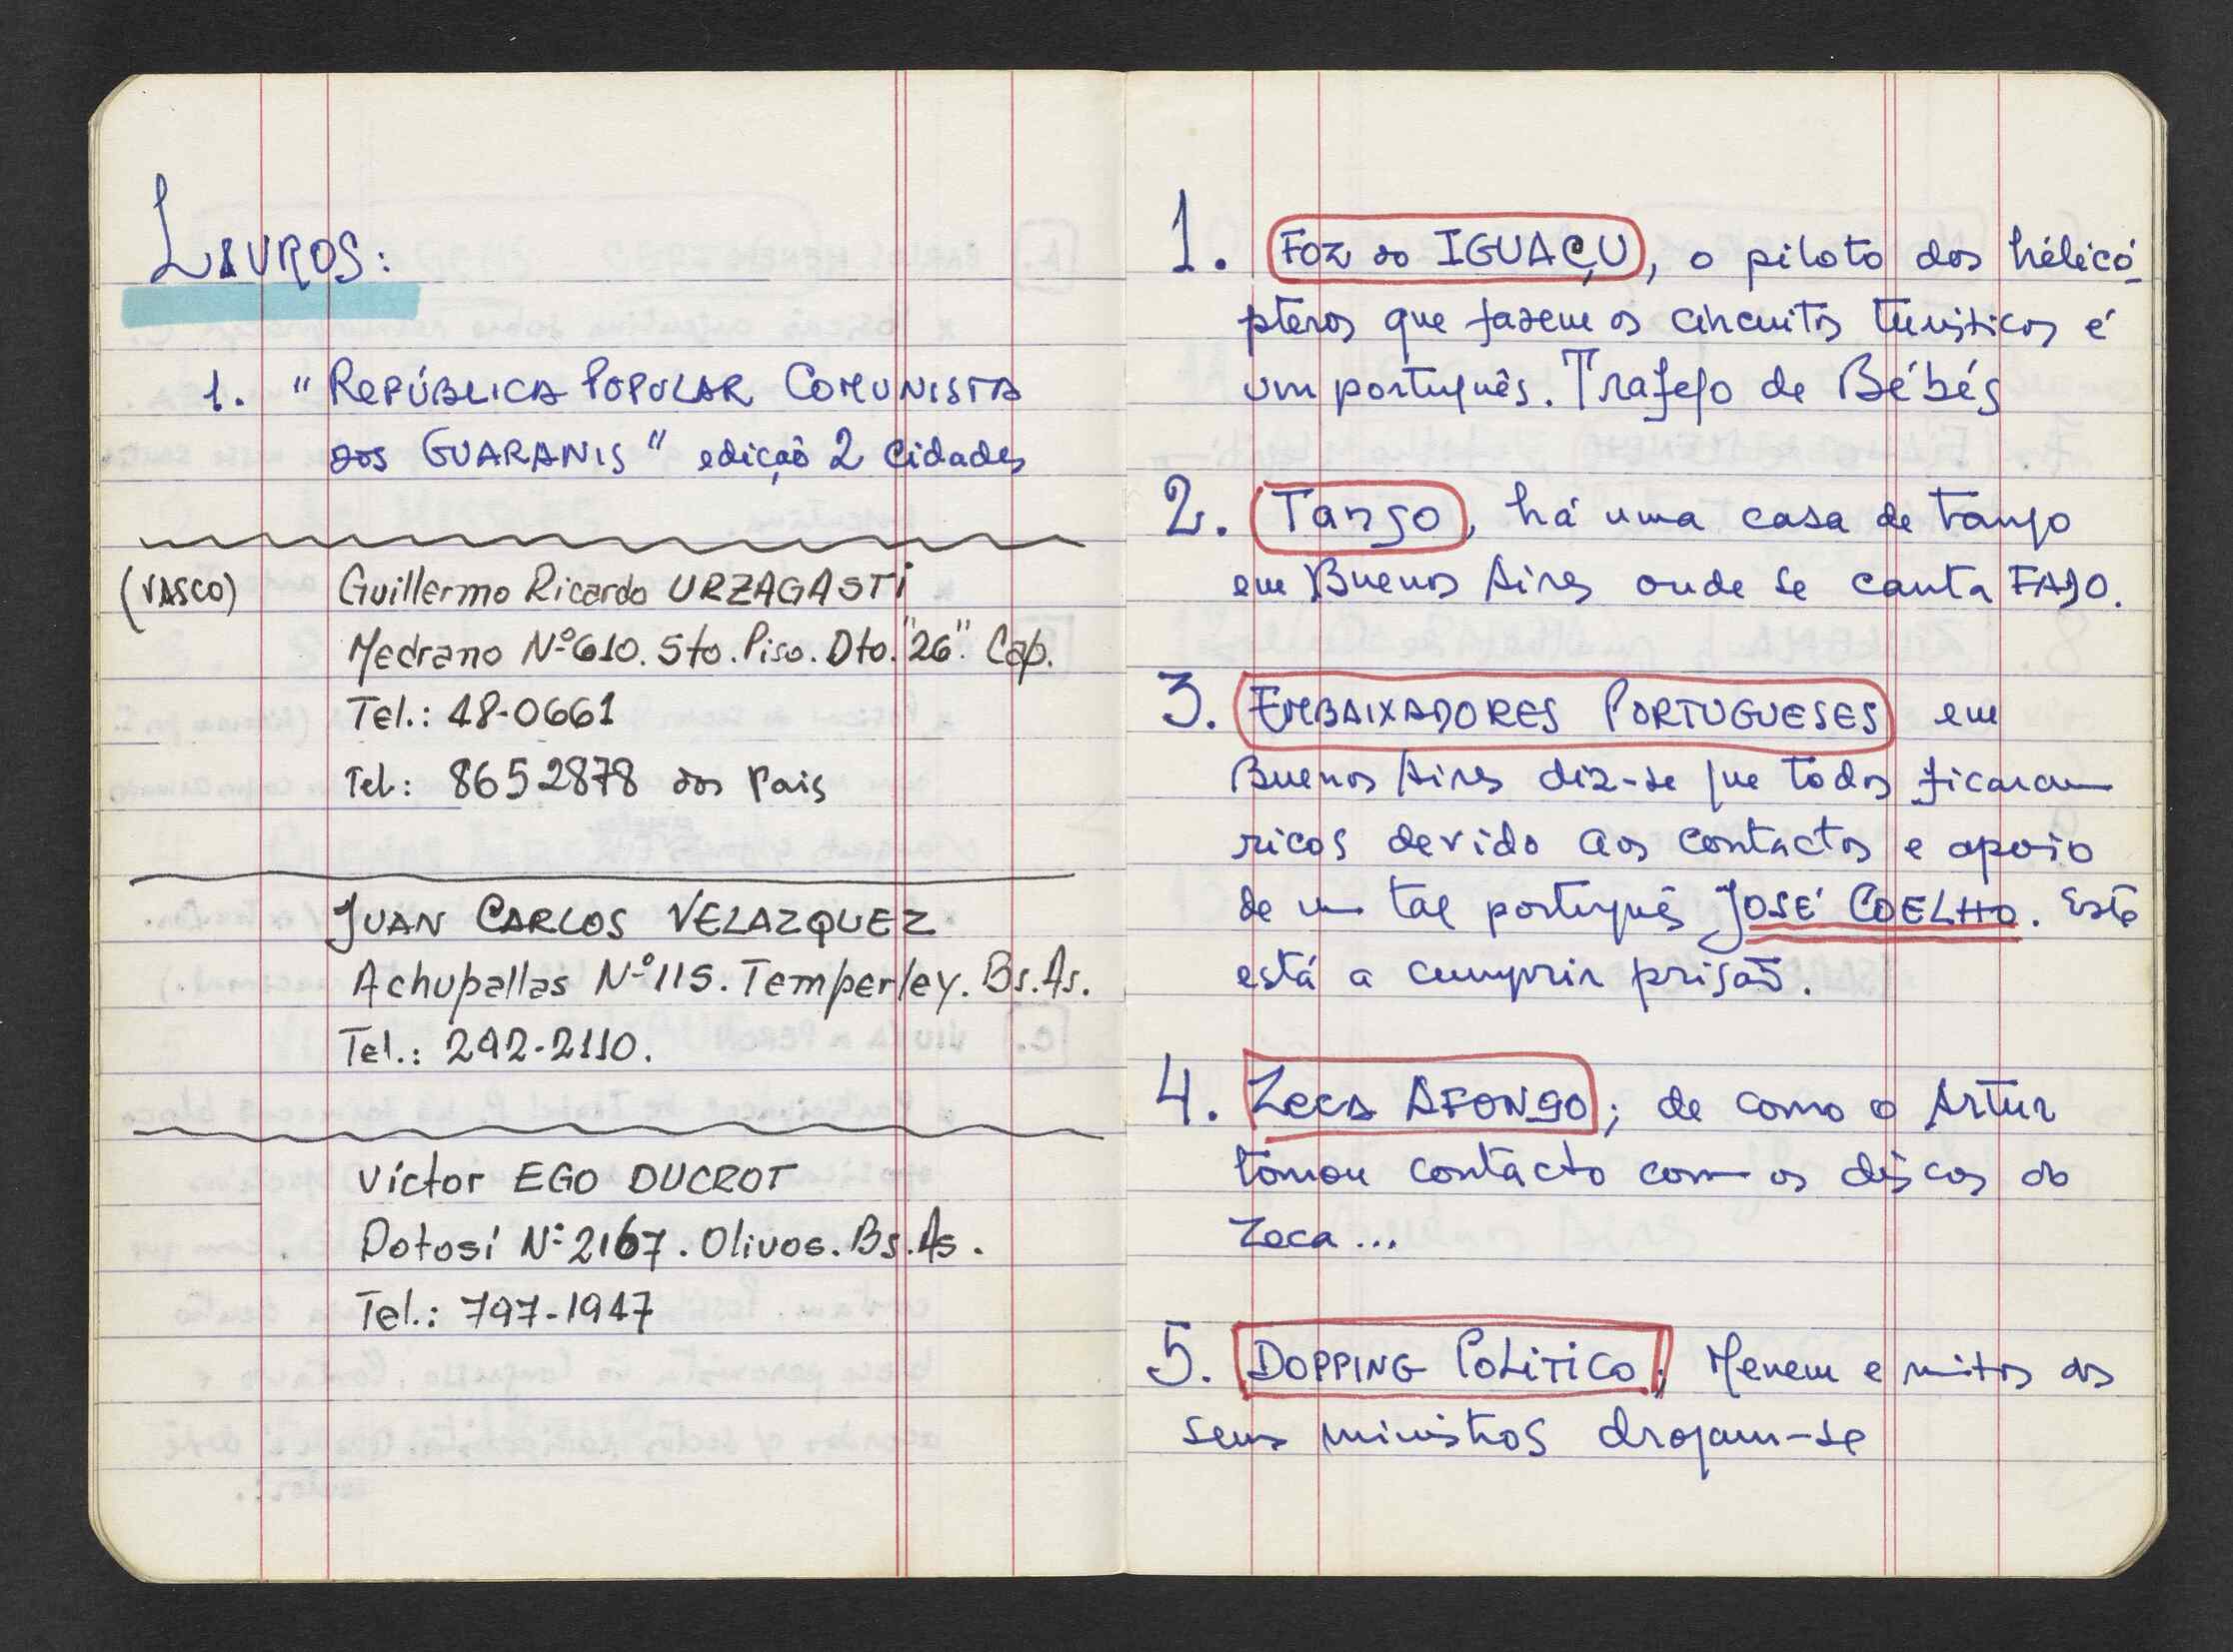 LIVROS:
1. "REPÚBLICA POPULAR COMUNISTA
dos GUARANIS" edição 2 Cidades
(VASCO) Guillermo Ricardo URZAGASTI
Medrano Nº 610. 5to. Piso. Dto. "26". Cap.
Tel.: 48-0661
Tel: 8652878 dos Pais
JUAN CARLOS VELAZQUEZ
Achupallas Nº 115. Temperley. Bs. As.
Tel.: 292-2110.
Víctor EGO DUCROT
Potosí Nº 2167. Olivos. Bs. As.
Tel.: 797-1947
1. FOZ do IGUAÇU, o piloto dos hélicó-
pteros que fazem os circuitos turísticos é
um português. Trafego de Bébés
2. Tango, há uma casa de tango
em Buenos Aires onde se canta FADO.
3. EMBAIXADORES PORTUGUESES em
Buenos Aires diz-se que todos ficaram
ricos devido aos contactos e apoio
de um tal português JOSÉ COELHO. Este
está a cumprir prisão.
4. ZECA AFONSO; de como o Artur
tomou contacto com os discos do
Zeca...
5. DOPPING POLITICO; Menem e muitos dos
seus ministros drogam-se